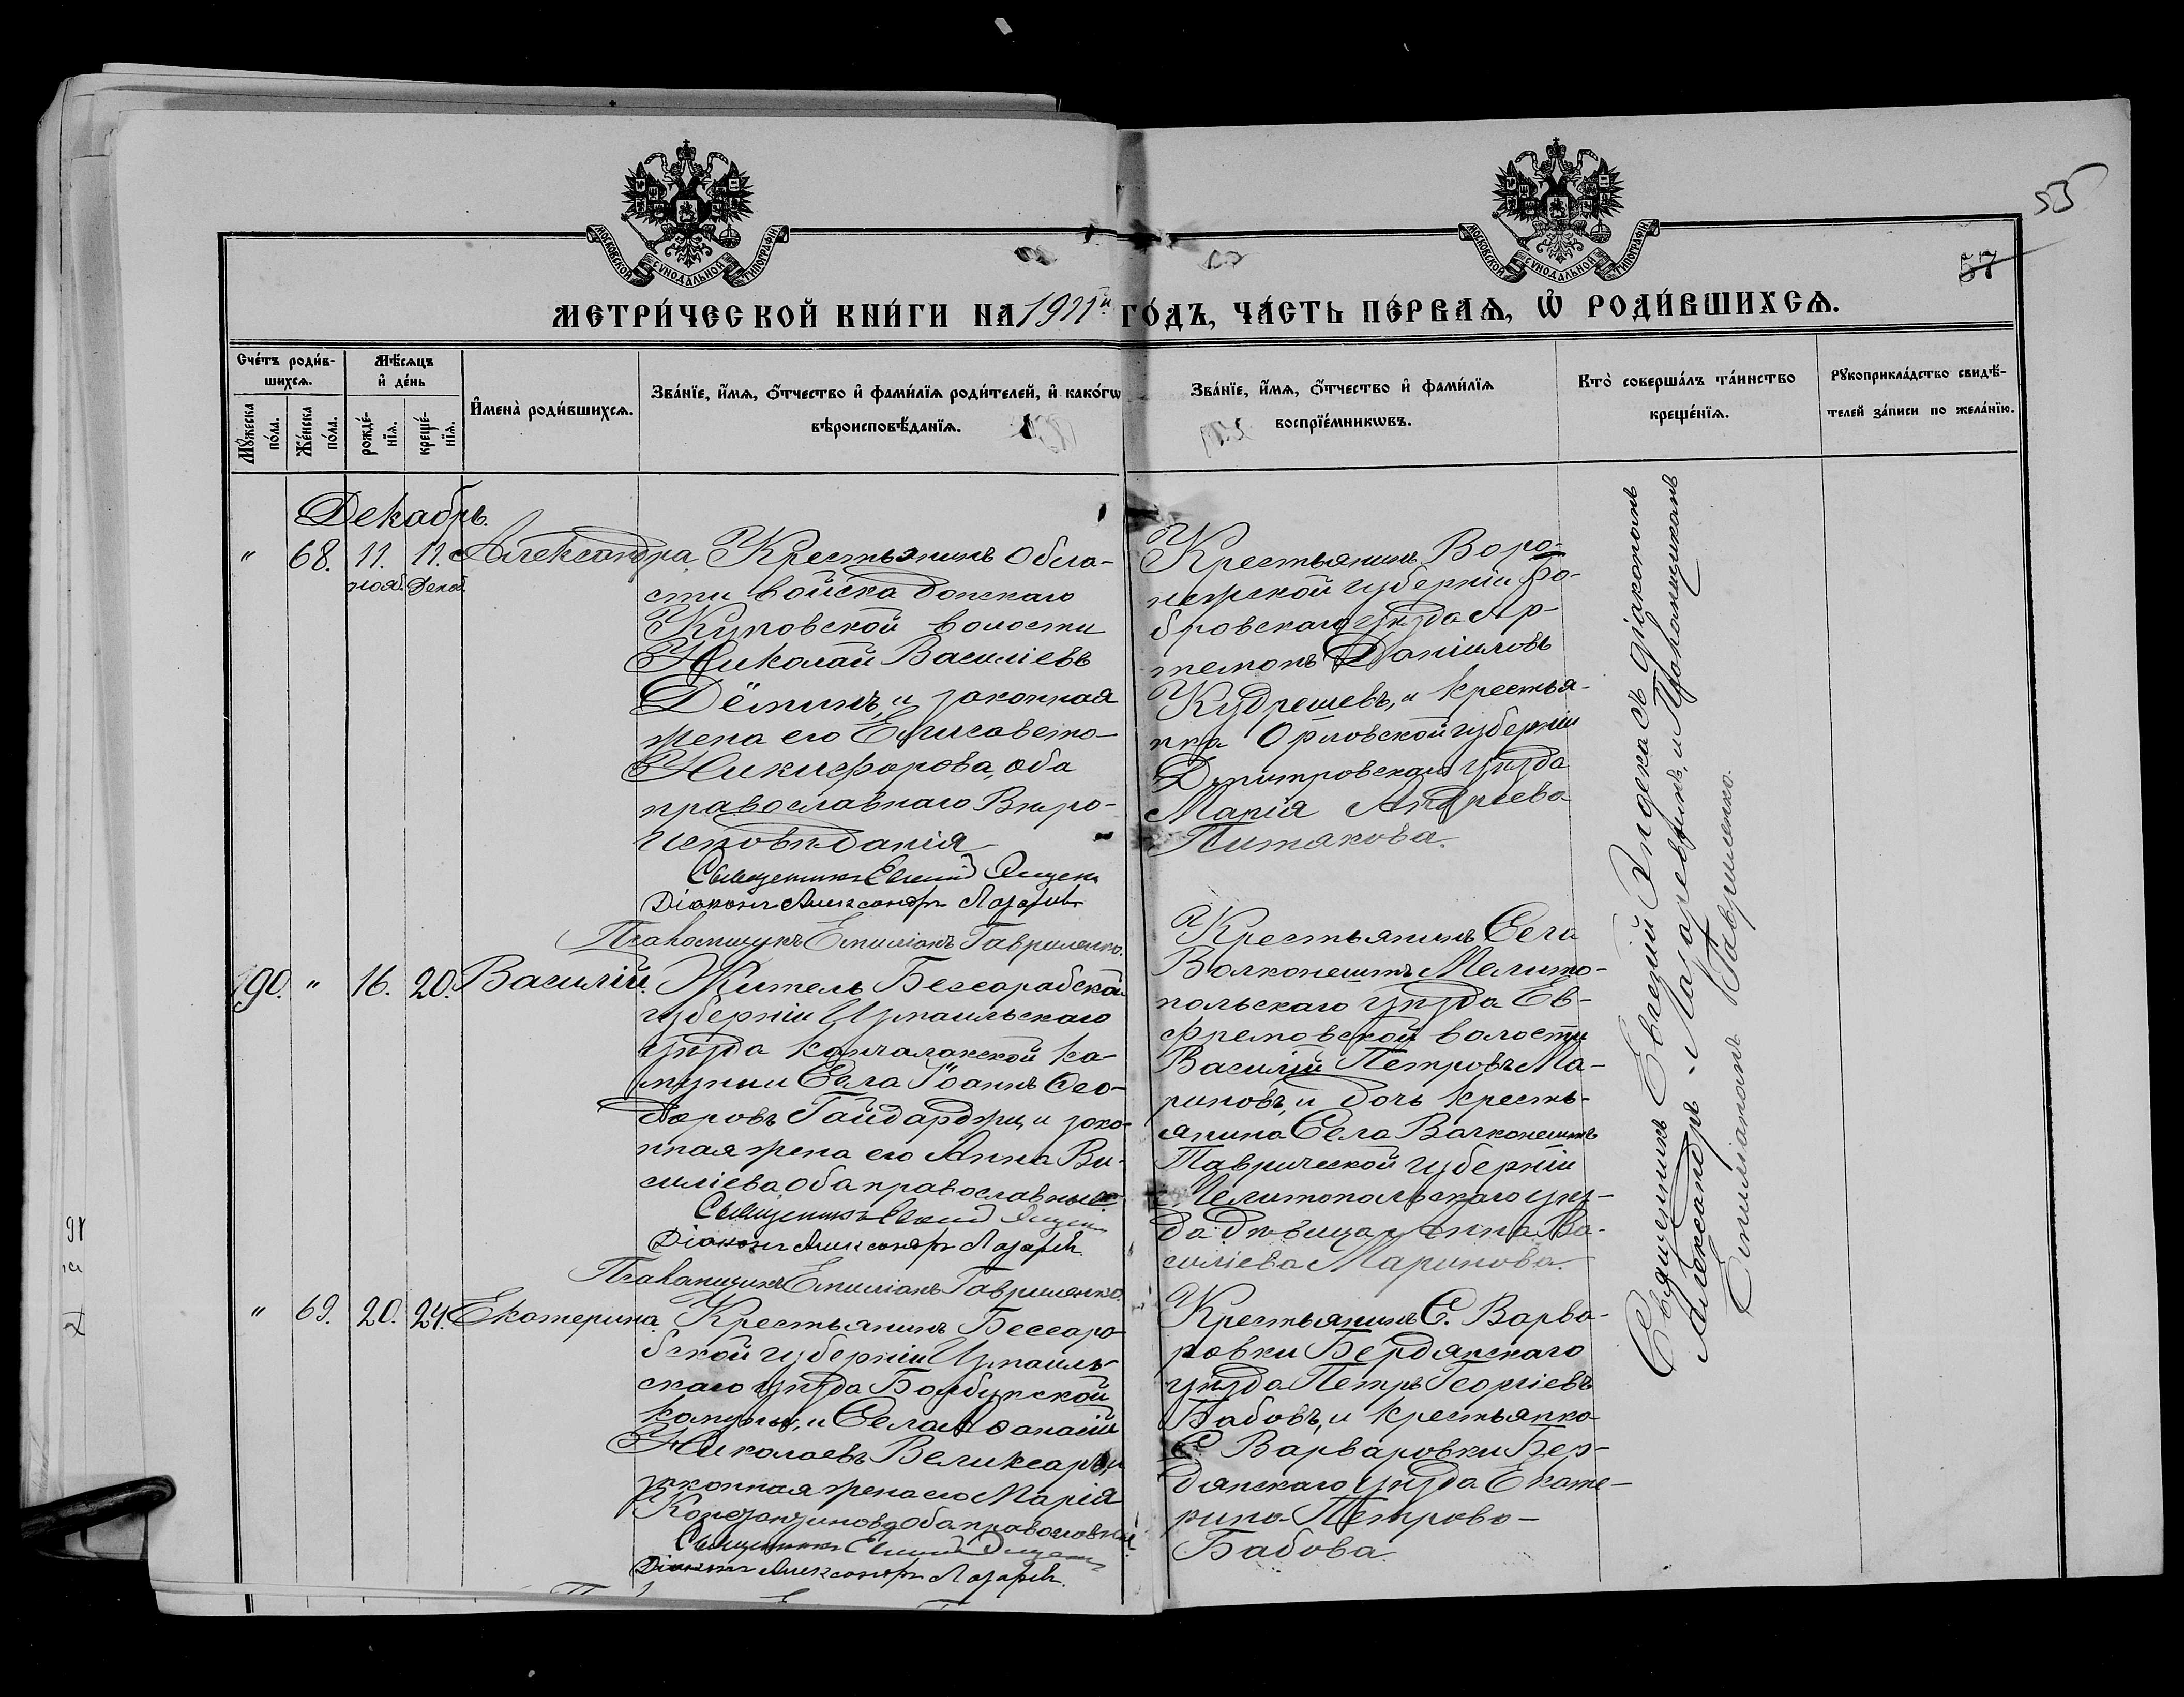 55
57
МОСКОВСКОЙ СѴНОДАЛЬНОЙ ТИПОГРАФІИ
МОСКОВСКОЙ СѴНОДАЛЬНОЙ ТИПОГРАФІИ
МЕТРИ́ЧЕСКОЙ КНИ́ГИ НА 1911й ГО́ДЪ, ЧА́СТЬ ПЕ́РВАѦ, Ѽ РОДИ́ВШИХСѦ.
Сче́тъ роди́в-
шихсѧ.
Мꙋжеска по́ла.
Же́нска по́ла.
Мѣ́сѧцъ и҆ де́нь
рожде́-
нїѧ.
креще́-
нїѧ.
И҆мена̀ роди́вшихсѧ.
Зва́нїе, и҆́мѧ, ѻ҆́тчество и҆ фами́лїѧ роди́телей, и҆ како́гѡ
вѣроисповѣ́данїѧ.
Зва́нїе, и҆́мѧ, ѻ҆́тчество и҆ фами́лїѧ
воспрїе́мникѡвъ.
Кто̀ соверша́лъ та́инство
креще́нїѧ.
Рꙋкоприкла́дство свидѣ́-
телей за́писи по жела́нїю.
Декабрь.
" 68. 11. 11. Александра.
нояб. Декаб.
Крестьянинъ Обла-
сти войска донскаго
волости
Николай Василіевъ
Дёминъ, и законная
жена его Елисавета
Никифорова, оба
православнаго Вѣро-
исповѣданія
Священникъ Евгеній
Діаконъ Александръ Лазаревъ
Псаломщикъ Емиліанъ Гавриленко.
Крестьянинъ Воро-
нежской губерніи Бо-
бровскаго уѣзда Ар-
темонъ Даніиловъ
Кудрешевъ, и крестья-
нка Орловской губерніи
Дмитровскаго уѣзда
Марія Андреева
Питякова.
90. " 16. 20. Василій.
Житель Бессарабской
губерніи Измаильскаго
уѣзда ка-
муны и Села Іоаннъ Ѳео-
доровъ Гайдарджи, и зако-
нная жена его Анна Ва-
силіева оба православные
Священникъ Евгеній
Діаконъ Александръ Лазаревъ.
Псаломщикъ Емиліанъ Гавриленко.
Крестьянинъ Села
Волконештъ Мелито-
польскаго уѣзда Еф-
фремовской волости
Василій Петровъ Ма-
риновъ, и дочь кресть-
янина Села Волконештъ
Таврической губерніи
Мелитопольскаго уѣз-
да дѣвица Анна Ва-
силіева Маринова.
" 69. 20. 24. Екатерина.
Крестьянинъ Бессара-
бской губерніи Измаиль-
скаго уѣзда Болбукской
камуны, и Села Аѳанасій
Николаевъ Великсаръ, и
законная жена его Марія
Константинова, оба православные
Священникъ Евгеній
Діаконъ Александръ Лазаревъ.
Крестьянинъ С. Варва-
ровки Бердянскаго
уѣзда Петръ Георгіевъ
Бабовъ, и крестьянка
С. Варваровки Бер-
дянскаго уѣзда Екате-
рина Петрова
Бабова.
Священникъ Евгеній съ діакономъ
Александръ Лазаревымъ, и Псаломщикомъ
Емиліаномъ Гавриленко.